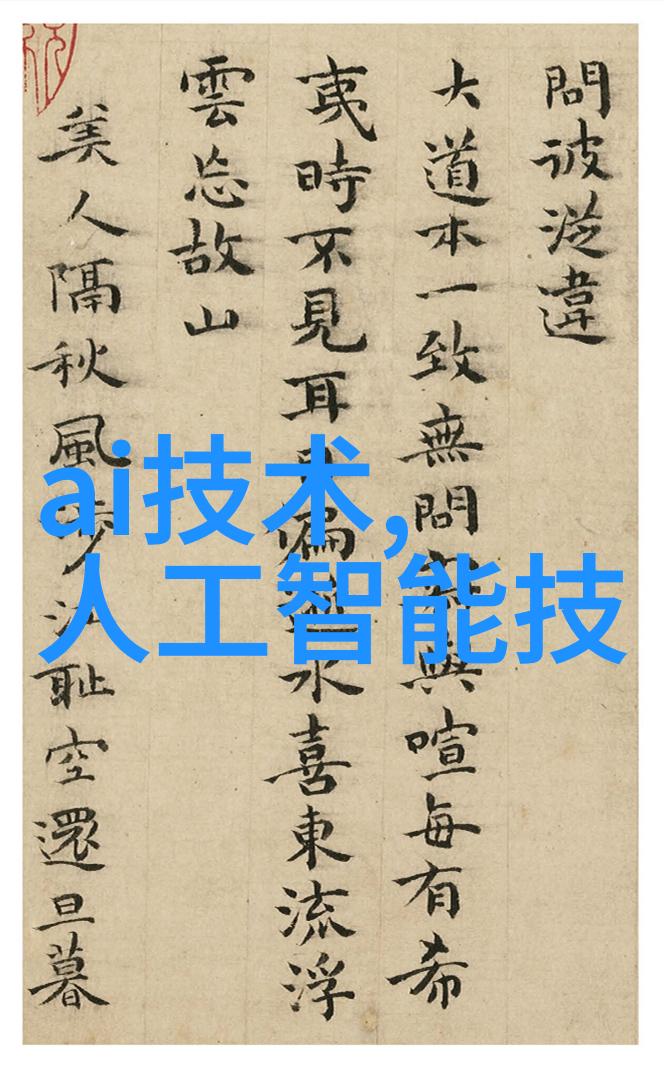 問彼從違
大道本一致無問與喧每有希
夷時不見耳偏水喜東流浮
雲忘故山
美人隔秋風耻空還旦暮
ai技术,
人工智能技